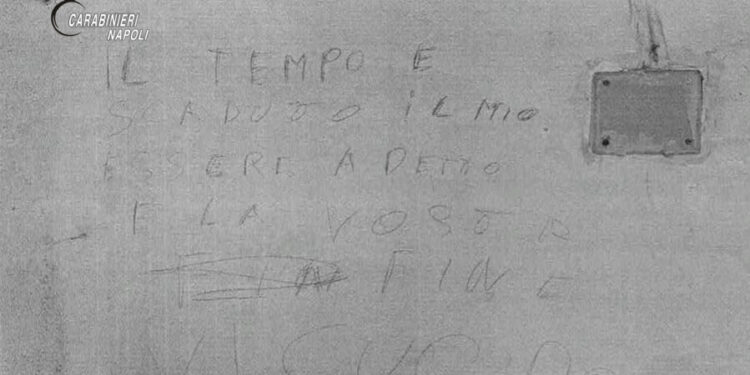 CARABINIERI
NAPOLI
IL TEMPO E
SCADUTO IL MIO
ESSERE A DETTO
E LA VOSTR
FINE